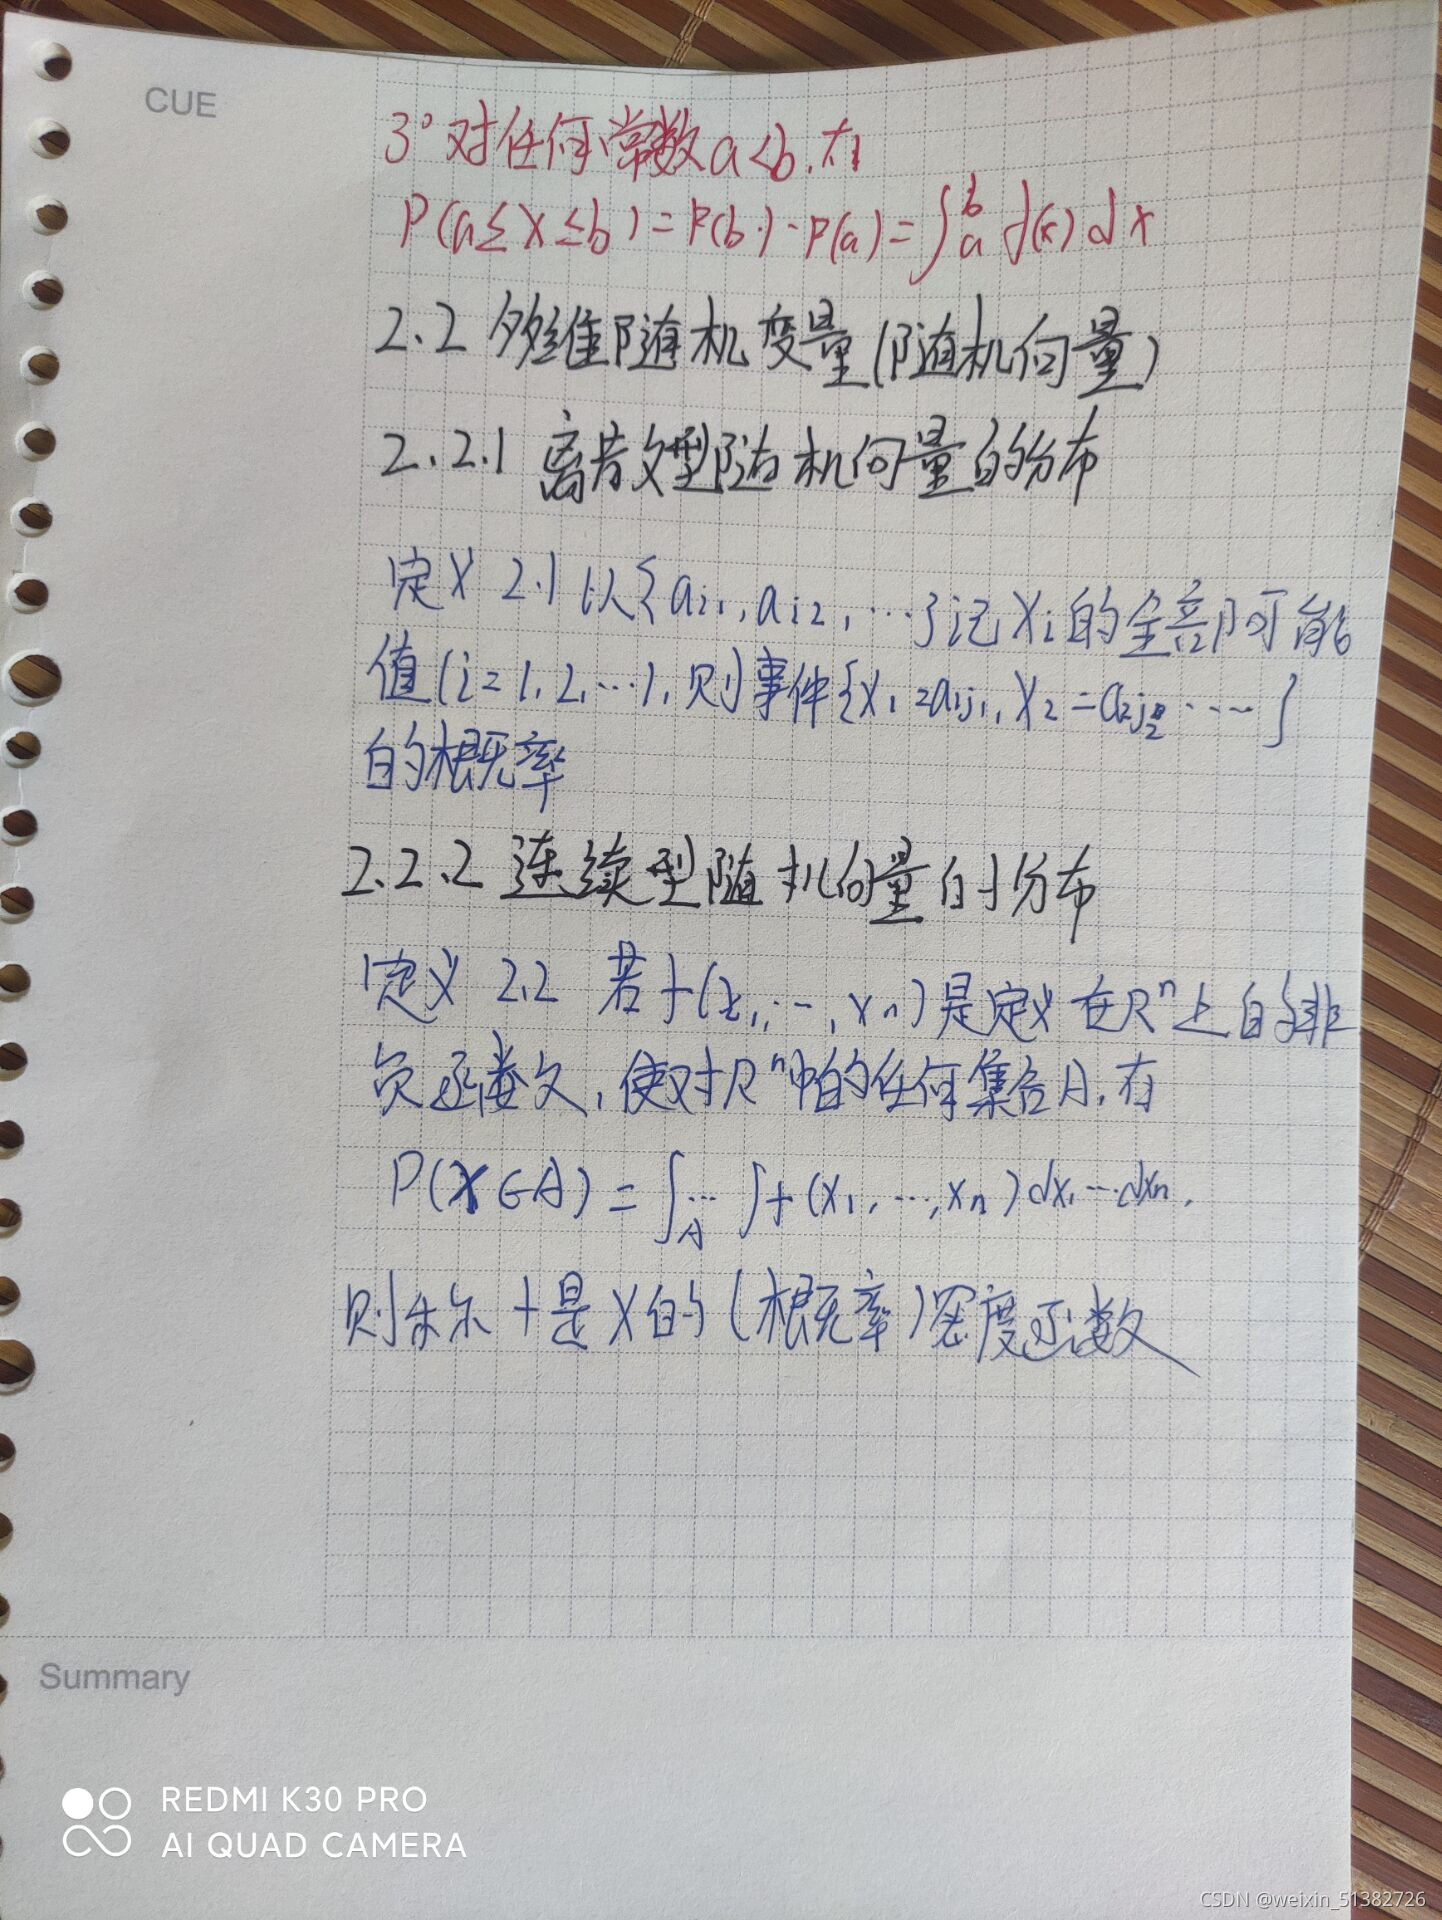 CUE
3° 对任何常数a<b,有
P(a≤X≤b)=F(b)-F(a)=∫_a^b f(x)dx
2.2 多维随机变量(随机向量)
2.2.1 离散型随机向量的分布
定义 2.1 以{ai1,ai2,…}记Xi的全部可能
值(i=1,2,…),则事件{X1=a1j1,X2=a2j2……}
的概率
2.2.2 连续型随机向量的分布
定义 2.2 若f(x1,…,xn)是定义在R^n上的非
负函数,使对R^n中的任何集合A,有
P(X∈A)=∫_A…∫f(x1,…,xn)dx1…dxn.
则称f是X的(概率)密度函数
Summary
REDMI K30 PRO
AI QUAD CAMERA
CSDN @weixin_51382726